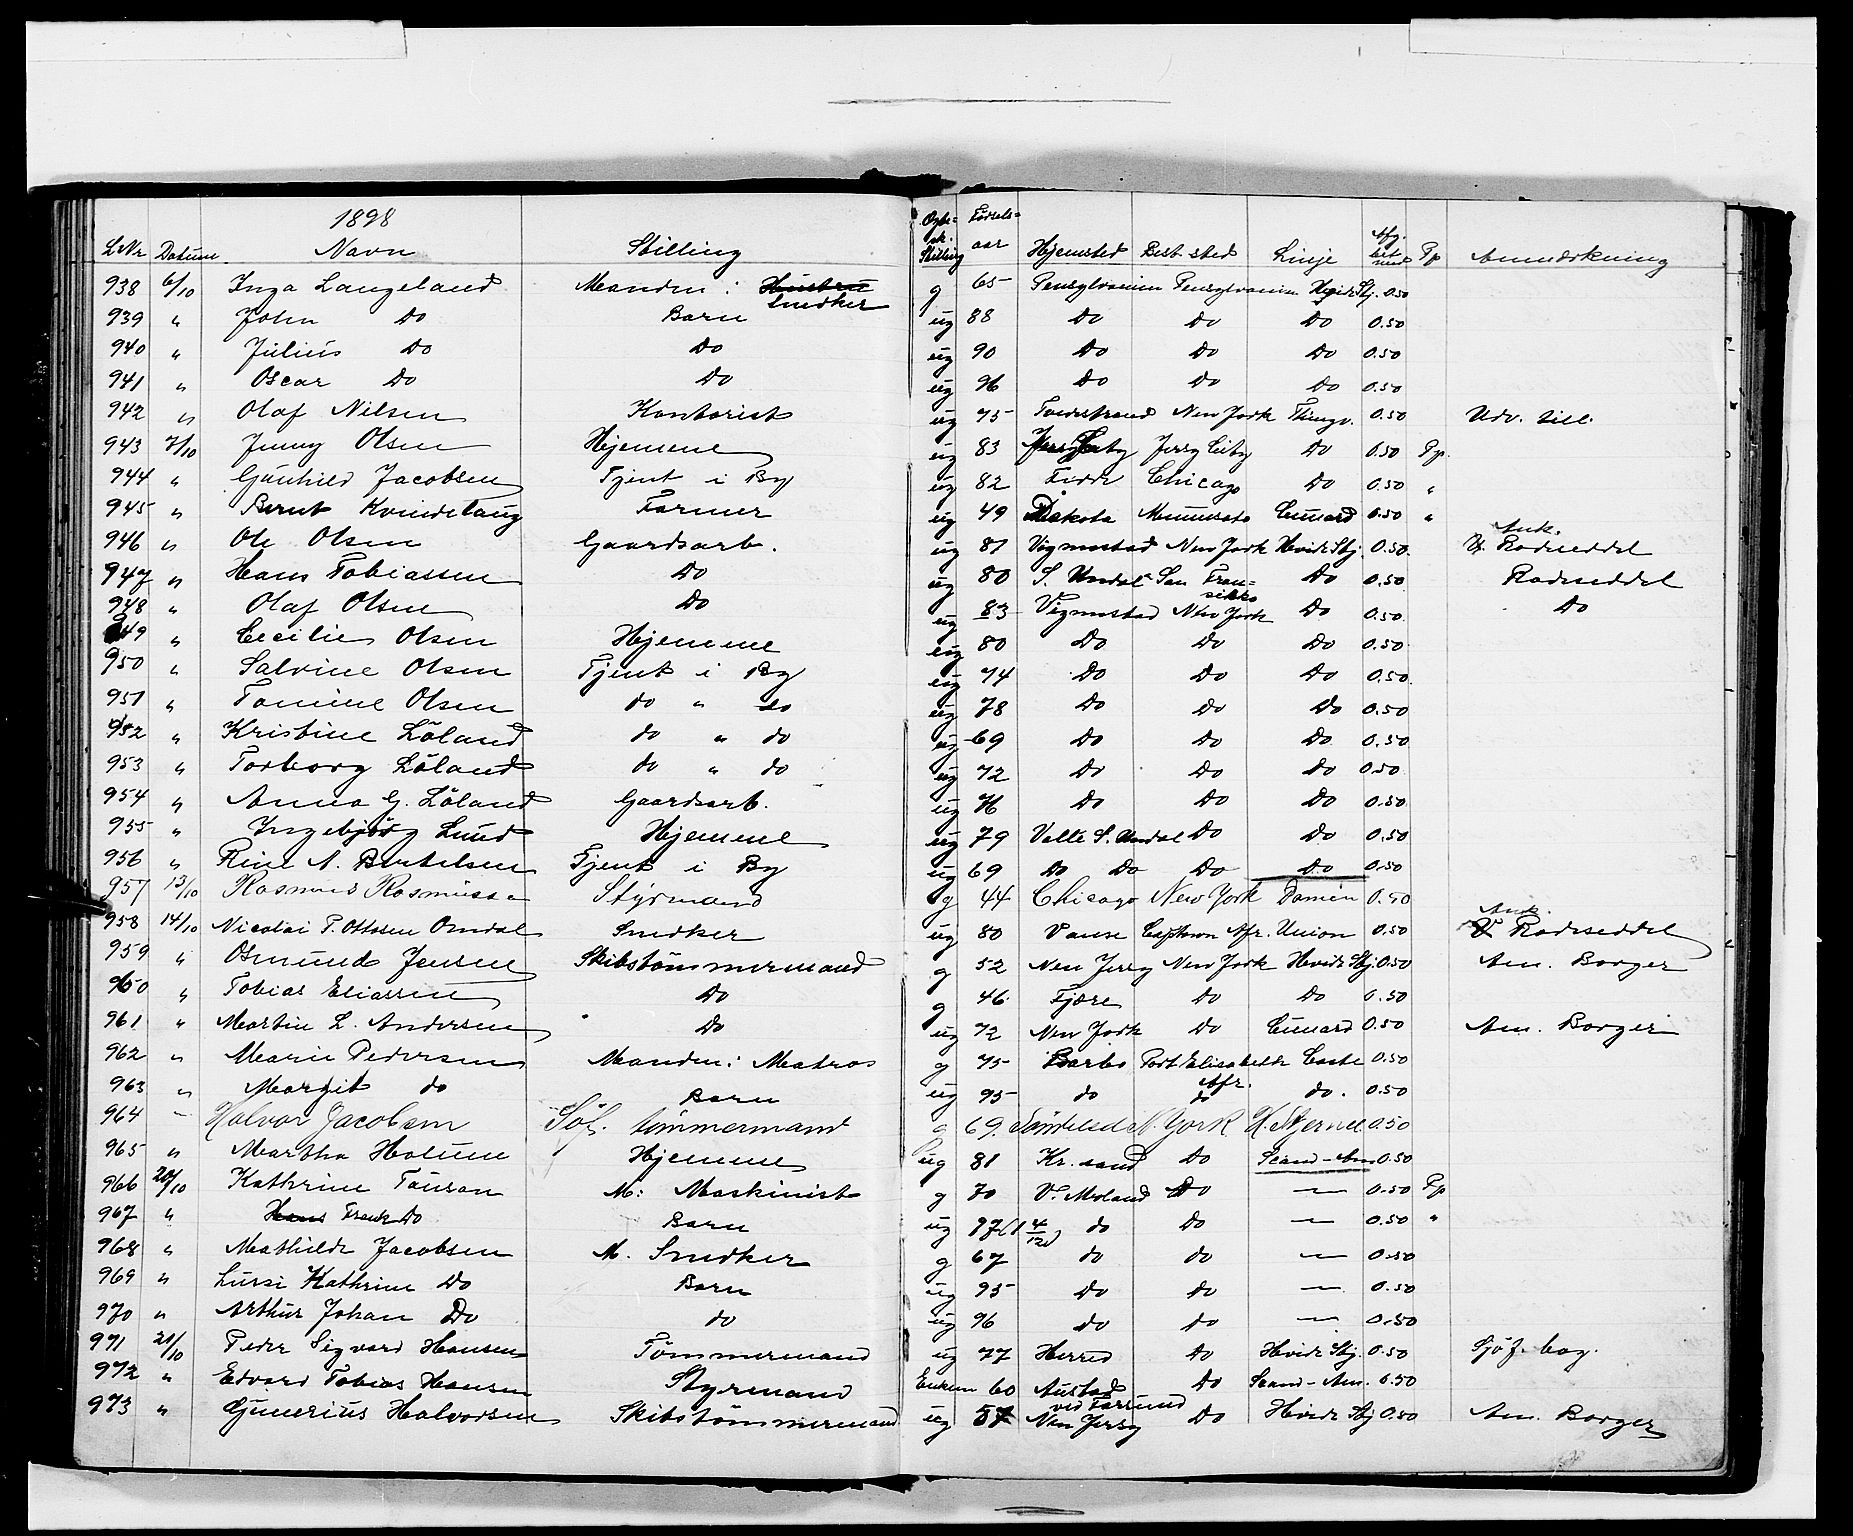 1898
LNr Datum Navn Stilling Egte-sk. Stilling Fødsels-aar Hjemsted Best.sted Linje Afg. Pp Anmærkning
938 6/10 Inga Langeland Manden: Snedker g 65 Pensylvanien Pensylvanien Hvide Stj. 0.50
939 " John Do Barn ug 88 Do Do Do 0.50
940 " Julius Do Do ug 90 Do Do Do 0.50
941 " Oscar Do Do ug 96 Do Do Do 0.50
942 " Olaf Nilsen Kontorist ug 75 Tvedestrand New York Thingv. 0.50 Udv. till.
943 7/10 Jenny Olsen Hjemme ug 83 Jersy City Jersy City Do 0.50 Pp.
944 " Gunhild Jacobsen Tjent i By ug 82 Chicago Do 0.50 "
945 " Bernt Kvindelaug Farmer ug 49 Dakota Minnesota Cunard 0.50 "
946 " Ole Olsen Gaardsarb. ug 81 Vigmostad New York Hvide Stj. 0.50 Ank. Rodseddel
947 " Hans Tobiassen Do ug 80 S. Undal San Fran-sisko Do 0.50 Rodseddel
948 " Olaf Olsen Do ug 83 Vigmostad New York Do 0.50 Do
949 " Cecilie Olsen Hjemme ug 80 Do Do Do 0.50
950 " Salvine Olsen Tjent i By ug 74 Do Do Do 0.50
951 " Tomine Olsen do " do ug 78 Do Do Do 0.50
952 " Kristine Löland do " do ug 69 Do Do Do 0.50
953 " Torborg Löland do " do ug 72 Do Do Do 0.50
954 " Anna G. Löland Gaardsarb. ug Do Do Do 0.50
955 " Ingebjörg Lund Hjemme ug 79 Valle S. Undal Do Do 0.50
956 " Rine N. Bertelsen Tjent i By ug 69 Do Do Do Do 0.50
957 13/10 Rasmus Rasmussen Styrmand g 44 Chicago New York Damen 0.50
958 14/10 Nicolai P. Ottosen Omdal Snedker ug 80 Vanse Captown Afr. Union 0.50 Ank. Rodseddel
959 " Osmund Jensen Skibstömmermand g 52 New Jersy New York Hvide Stj 0.50 Am. Borger
960 " Tobias Eliassen Do g 46 Fjære Do Do 0.50
961 " Martin L. Andersen Do ug 72 New York Do Cunard 0.50 Am. Borger
962 " Marie Pedersen Manden: Matros g 75 Barbo Port Elisabeth Afr. Castle 0.50
963 " Margit do Barn ug 95 do do do. 0.50
964 " Halvor Jacobsen Söf. tömmermand g 69. Söndeled N. York H. Stjerne 0.50
965 " Martha Holum Hjemme ug 81 Kr.sand Do Scand-Am 0.50
966 20/10 Kathrine Tauran M: Maskinist g 70 V. Moland Do — 0.50 Pp
967 " Hans Frank Do Barn ug 97 (1 4/12) do Do — 0.50 "
968 " Mathilde Jacobsen M. Snedker g 67 do do — 0.50
969 " Lussi Kathrine Do Barn ug 95 do do — 0.50
970 " Arthur Johan Do do ug 96 do do — 0.50
971 21/10 Peder Sigvard Hansen Tömmermand ug 77 Herred Do Hvide Stj. 0.50 Sjöf. bog.
972 " Edvard Tobias Hansen Styrmand Enkem 60 Austad ved Farsund Do Scand-Am. 0.50
973 " Gunerius Halvorsen Skibstömmermand ug 57 New Jersy Do Hvide Stj 0.50 Am. Borger